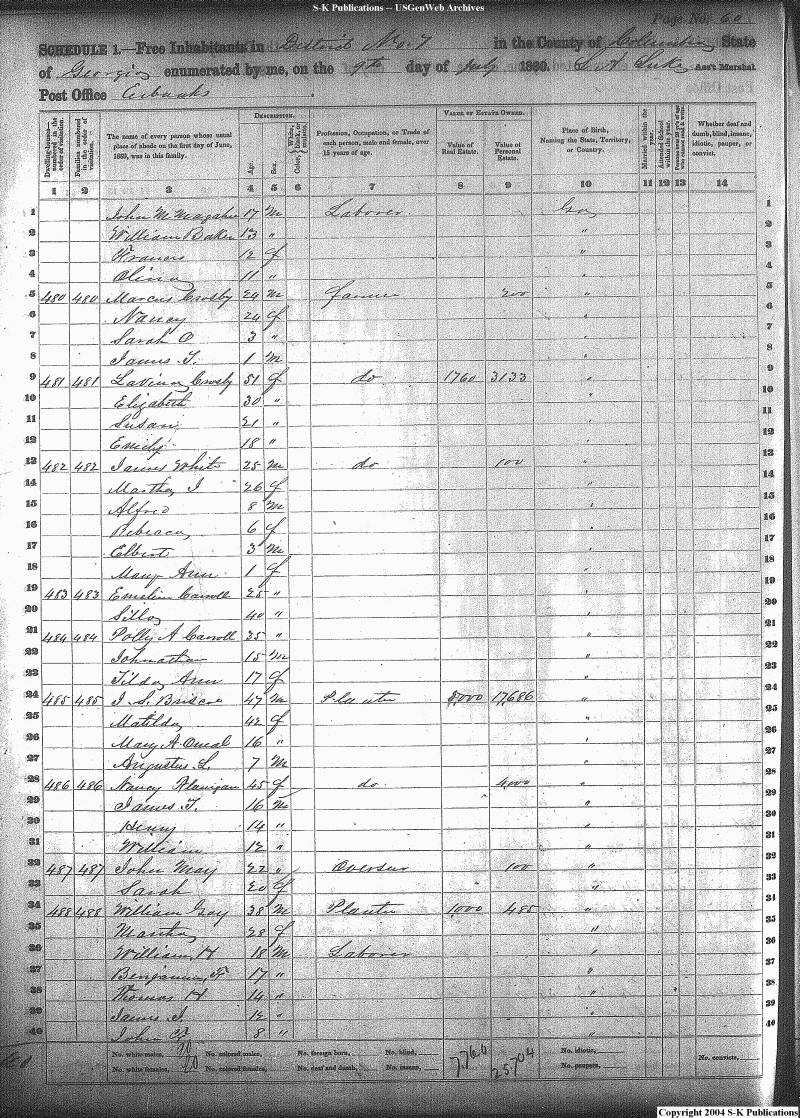 S-K Publications -- USGenWeb Archives
Page No. 60
SCHEDULE 1.—Free Inhabitants in District No. 7 in the County of Columbia State
of Georgia enumerated by me, on the 9th day of July 1860. Ass't Marshal
Post Office
Dwelling-houses—numbered in the order of visitation.
Families numbered in the order of visitation.
The name of every person whose usual place of abode on the first day of June, 1860, was in this family.
DESCRIPTION.
Age.
Sex.
Color, White, black, or mulatto.
Profession, Occupation, or Trade of each person, male and female, over 15 years of age.
VALUE OF ESTATE OWNED.
Value of Real Estate.
Value of Personal Estate.
Place of Birth, Naming the State, Territory, or Country.
Married within the year.
Attended School within the year.
Whether deaf and dumb, blind, insane, idiotic, pauper, or convict.
1 2 3 4 5 6 7 8 9 10 11 12 13 14
1 John M Magahee 17 M Laborer Geo 1
2 William Baker 13 " " 2
3 Frances 12 f " 3
4 11 " " 4
5 480 480 Marcus Crosby 24 M farmer 200 " 5
6 Nancy 24 f " 6
7 Sarah O 3 " " 7
8 James T. 1 M " 8
9 481 481 Lavina Crosby 51 f do 1760 3133 " 9
10 Elizabeth 30 " " 10
11 Susan 21 " " 11
12 Emily 18 " " 12
13 482 482 James White 25 M do 100 " 13
14 Martha J 26 f " 14
15 Alfred 8 M " 15
16 Rebecca 6 f " 16
17 Elbert 3 M " 17
18 Mary Ann 1 f " 18
19 483 483 Emeline Carroll 25 " " 19
20 40 " " 20
21 484 484 Polly A Carroll 35 " " 21
22 Johnathan 15 M " 22
23 Tilda Ann 17 f " 23
24 485 485 J. S. Briscoe 47 M Planter 17,686 " 24
25 Matilda 42 f " 25
26 Mary A 16 " " 26
27 Augustus L. 7 M " 27
28 486 486 Nancy Flanigan 45 f do 4,000 " 28
29 James T. 16 M " 29
30 Henry 14 " " 30
31 William 12 " " 31
32 487 487 John May 22 " Overseer 100 " 32
33 Sarah 20 f " 33
34 488 488 William Gay 38 M Planter 1,000 485 " 34
35 Martha 28 f " 35
36 William H 18 M Laborer " 36
37 Benjamin F 17 " " 37
38 Thomas H 14 " " 38
39 James J 12 " " 39
40 John 8 " " 40
No. white males, 20 No. colored males, No. foreign born, No. blind, 7760 25704 No. idiotic,
No. white females, 20 No. colored females, No. deaf and dumb, No. insane, No. paupers, No. convicts,
Copyright 2004 S-K Publications